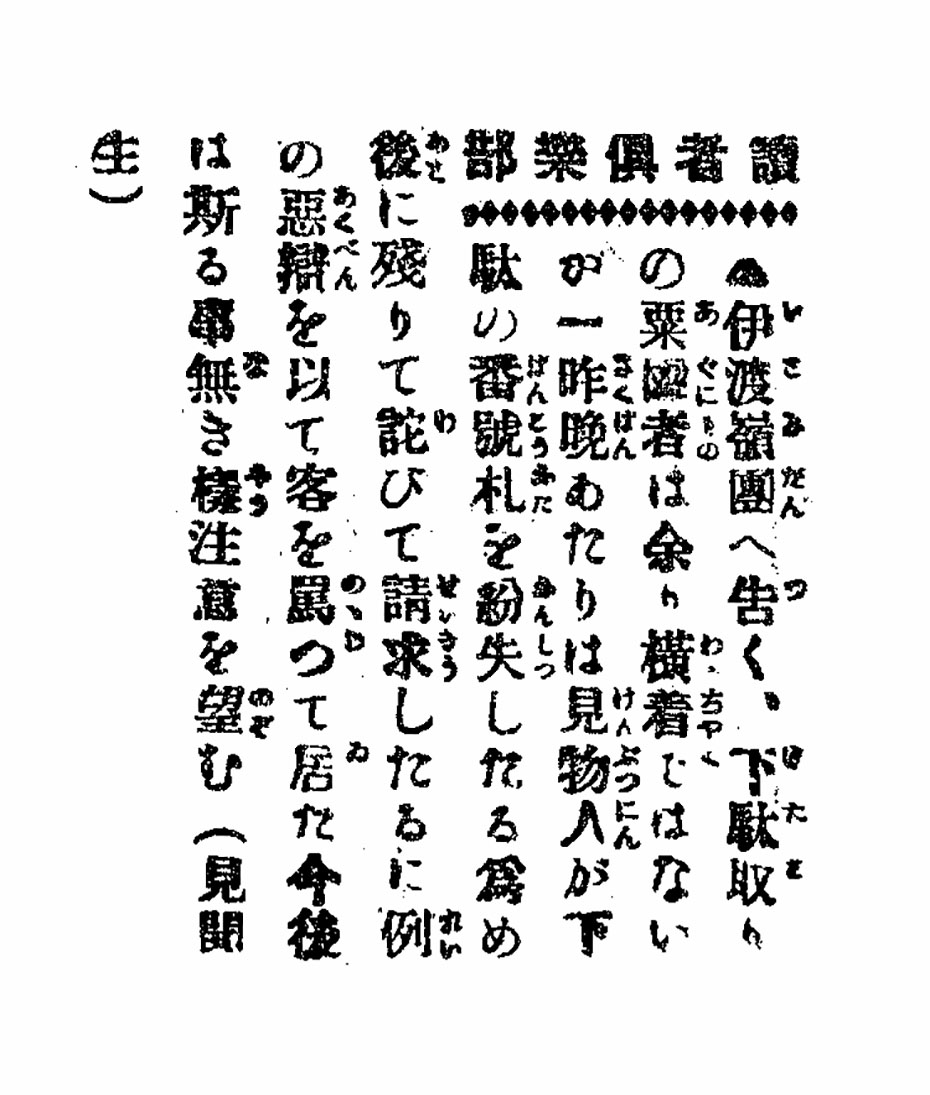 讀者俱樂部
▲伊渡嶺團へ告く、下駄取り
の粟國者は余り横着ではない
が一昨晩あたりは見物人が下
駄の番號札を紛失したる爲め
後に殘りて詫びて請求したるに例
の惡辯を以て客を罵つて居た今後
は斯る事無き樣注意を望む(見聞
生)